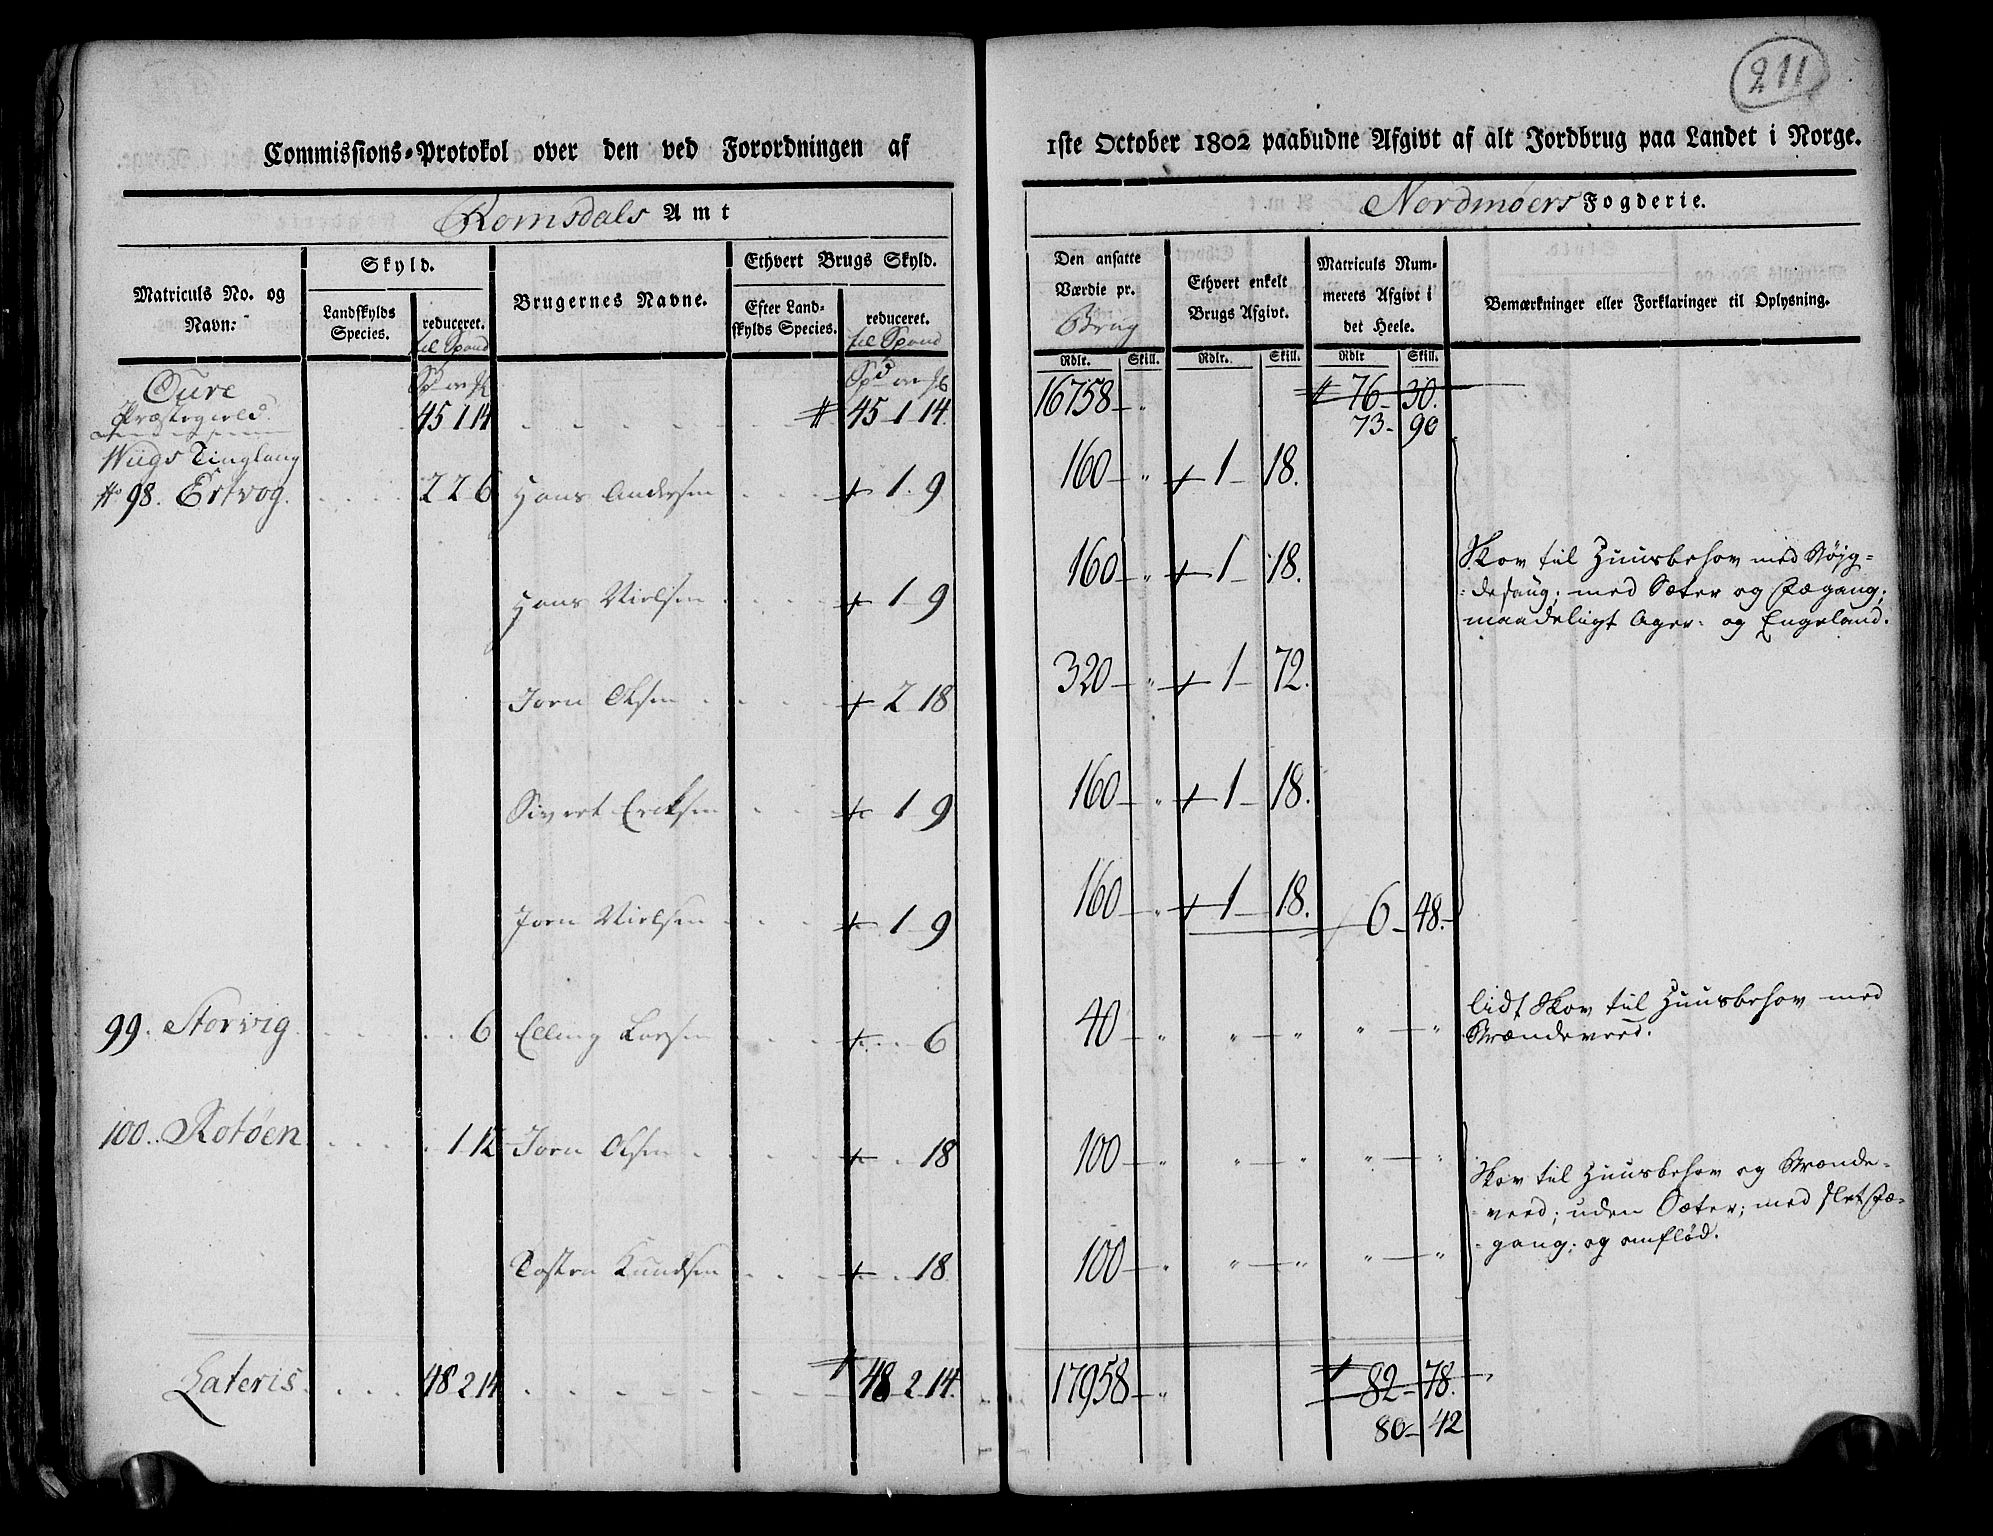 211
Commissions-Protokol over den ved Forordningen af 1ste October 1802 paabudne Afgivt af alt Jordbrug paa Landet i Norge.
Romsdals Amt
Nordmøers Fogderie.
Matriculs No. og Navn:
Skyld.
Landskylds Species.
reduceret. til Spand
Brugernes Navne.
Ethvert Brugs Skyld.
Efter Landskylds Species.
reduceret. til Spand
Den ansatte Værdie pr. Brug
Ethvert enkelt Brugs Afgivt.
Matriculs Nummerets Afgivt i det Heele.
Bemærkninger eller Forklaringer til Oplysning.
Rdlr. Skill. Rdlr. Skill. Rdlr Skill.
Oure
Præstegield 45 1 14 45 1 14. 16758 76 30.
73 90
Wiigs Tinglaug
No 98. Ertvog. 2 2 6 Hans Andersen 1 9 160 1 18.
Hans Nielsen 1 9 160 1 18.
Skov til Huusbehov med Nøjg=
=desang; med Sæter og Fægang;
maadeligt Ager= og Engeland.
Jørn Olsen 2 18 320 1 72.
Sivert Ericksen 1 9 160 1 18.
Jørn Nielsen 1 9 160 1 18. 6 48.
99. Storvig 6 Elling Larsen 6 40 " " " "
lidt Skov til Huusbehov med
Brændeveed.
100. Rotøen 1 12 Jørn Olsen 18 100 " " " "
Skov til Huusbehov og Brænde=
veed; uden Sæter; med slet Fæ=
gang; og omflød.
Tosten Knudsen 18 100 " " " "
Lateris 48 2 14 48 2 14. 17958 82 78.
80 42